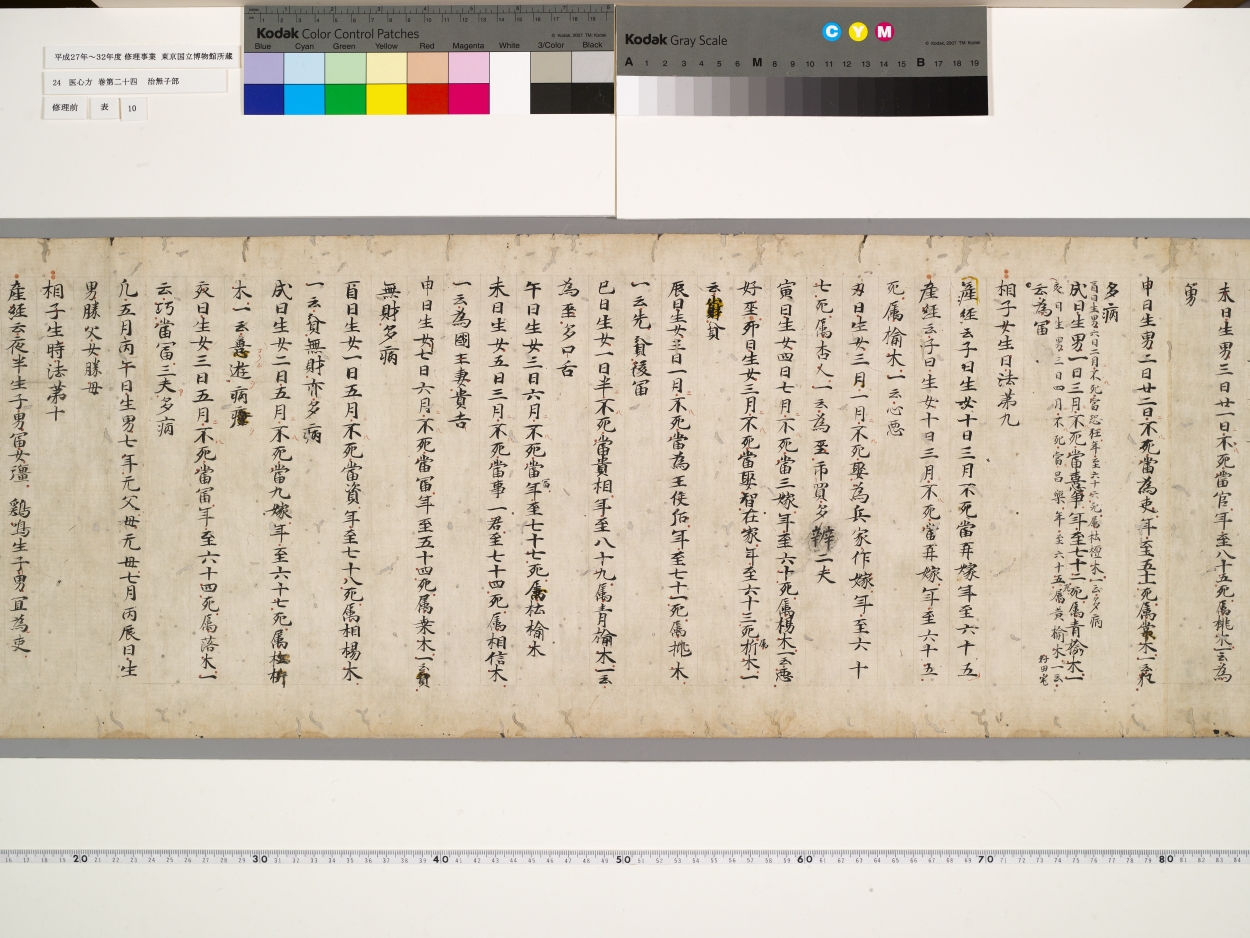 平成27年～32年度 修理事業 東京国立博物館所蔵
24 医心方 巻第二十四 治無子部
修理前 表 10
Kodak Color Control Patches
Blue Cyan Green Yellow Red Magenta White 3/Color Black
Kodak Gray Scale
C Y M
A 1 2 3 4 5 6 M 8 9 10 11 12 13 14 15 B 17 18 19
未日生男三日廿一日不死當官年至八十五死属桃木一云為
勇
申日生男二日廿二日不死當為吏年至五十死属
多病
酉日生男六日二月不死當恐狂年至六十六死属
戌日生男一日三月不死當年至七十二死属青榆木一
亥日生男二日四月不死當昌樂年至六十五属黄榆木一云
云為冨
相子女生日法苐九
產經云子日生女十日三月不死當弃嫁年至六十五
產經云子日生女十日三月不死當弃嫁年至六十五
死属榆木一云心悪
丑日生女三月一月不死娶為兵家作嫁年至六十
七死属杏人一云為巫市買多辩二夫
寅日生女四日七月不死當三嫁年至六十死属楊木一云悪
好巫卯日生女三月不死當娶智在家年至六十三死属析木一
云貧
辰日生女三日一月不死當為王使后年至七十一死属桃木
一云先貧後冨
巳日生女一日半不死當貴相年至八十九属青榆木一云
為巫多口舌
午日生女三日六月不死當年至七十七死属榆木
未日生女五日三月不死當事一君至七十四死属相信木
一云為國王妻貴吉
申日生女七日六月不死當冨年至五十四死属桒木一云
無財多病
酉日生女一日五月不死當資年至七十八死属相楊木
一云貧無財亦多病
戌日生女二日五月不死當九嫁年至六十七死属
木一云憙遊病
亥日生女三日五月不死當冨年至六十四死属落木一
云巧當冨三夫多病
凢五月丙午日生男七年元父母元母七月丙辰日生
男勝父女勝母
相子生時法苐十
產經云夜半生子男冨女𤯝 鷄鳴生子男冝為吏
20 30 40 50 60 70 80